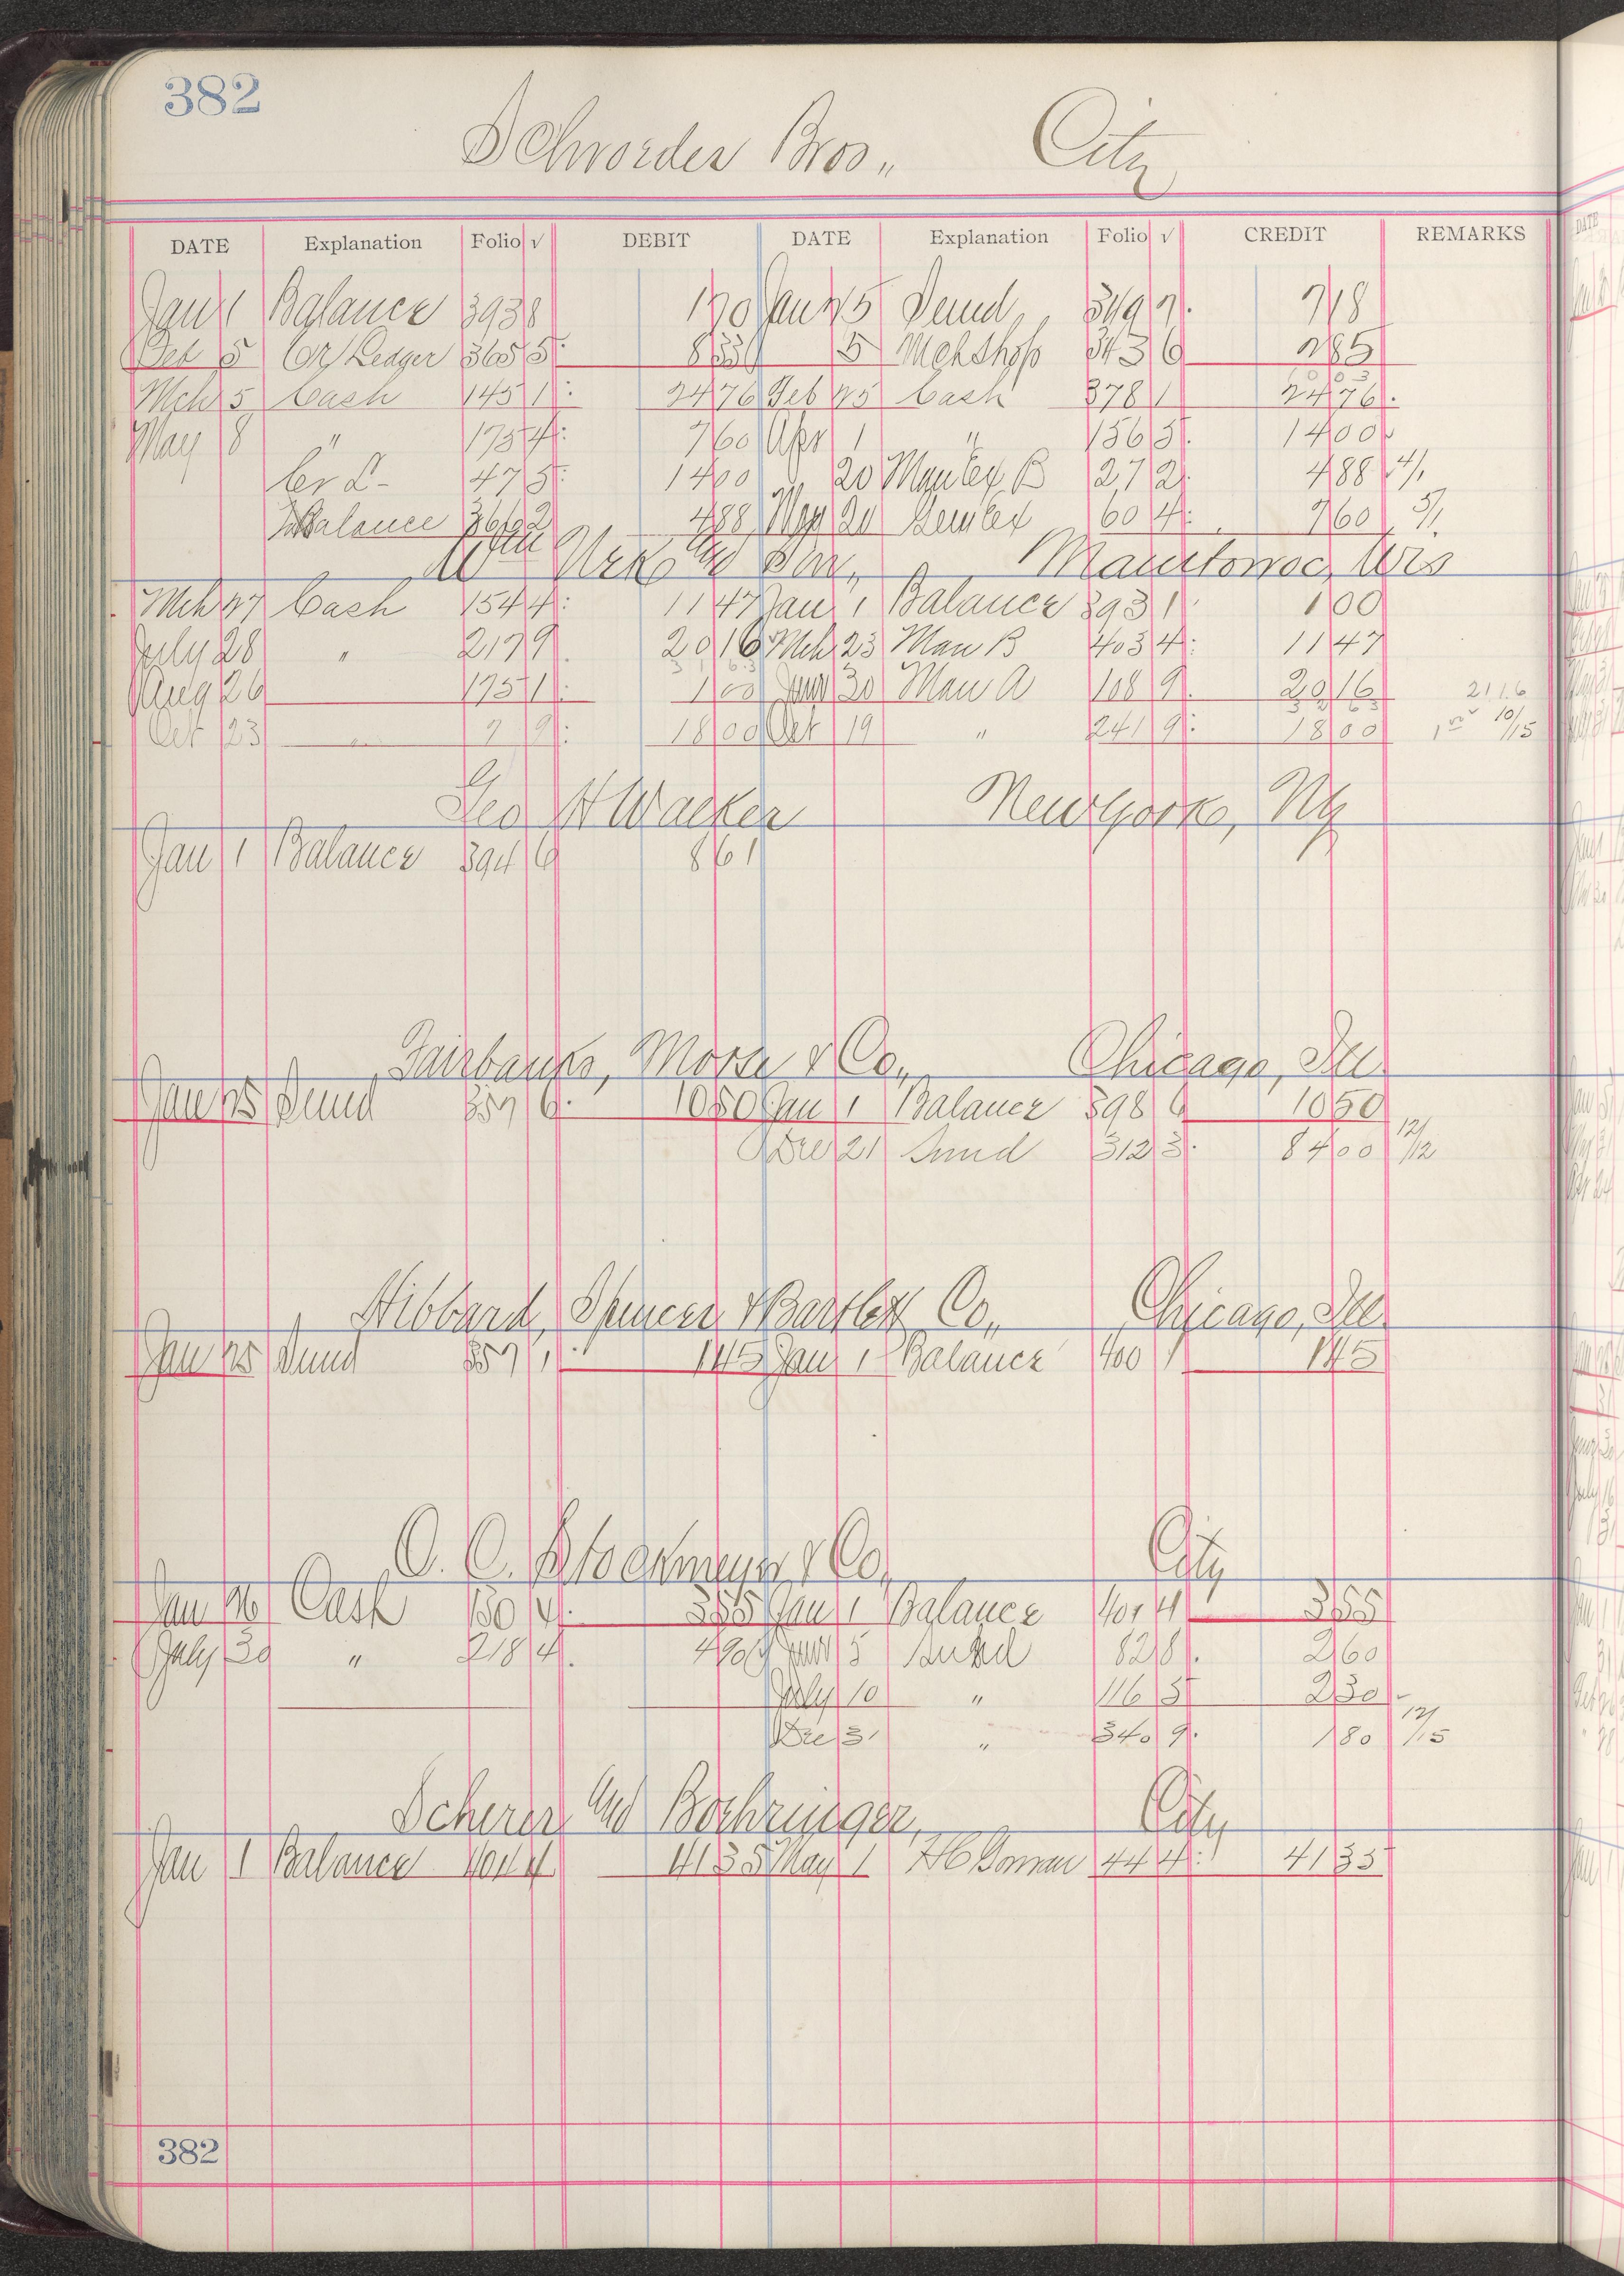 382
Schroeder Bros., City
DATE Explanation Folio √ DEBIT DATE Explanation Folio √ CREDIT REMARKS
Jan 1 Balance 393 8 1 70 Jan 25 Sund 349 7 7 18
Feb 5 Cr Ledger 365 5 8 33 5 Mch Shop 343 6 2 85
Mch 5 Cash 145 1 24 76 Feb 25 Cash 378 1 24 76
May 8 " 175 4 7 60 Apr 1 " 156 3 14 00
Cr L 47 5 14 00 20 Man Ex B 27 2 4 88 4/1
Balance 366 2 4 88 May 20 Gen Ex 60 4 7 60 5/1
Manitowoc, Wis
Mch 27 Cash 154 4 11 47 Jan 1 Balance 393 1 1 00
July 28 " 217 9 20 16 Mch 23 Man B 403 4 11 47
Aug 26 175 1 1 00 June 30 Man A 108 9 20 16 2116
Oct 23 " 7 9 18 00 Oct 19 " 241 9 18 00 10/15
Geo H Walker New York, Ny
Jan 1 Balance 394 6 8 61
Fairbanks, Morse & Co., Chicago, Ill.
Jan 25 Sund 357 6 10 50 Jan 1 Balance 398 6 10 50
Dec 21 Sund 312 3 84 00 12/12
Hibbard, Spencer & Bartlett Co., Chicago, Ill.
Jan 25 Sund 357 1 1 45 Jan 1 Balance 400 1 1 45
C. C. Stockmeyer & Co. City
Jan 26 Cash 130 4 3 55 Jan 1 Balance 401 4 3 55
July 30 " 218 4 4 90 June 5 Sund 82 8 2 60
July 10 " 116 3 2 30
Dec 31 " 340 9 1 80 12/15
Scherer and Boehringer, City
Jan 1 Balance 401 4 41 35 May 1 44 4 41 35
382